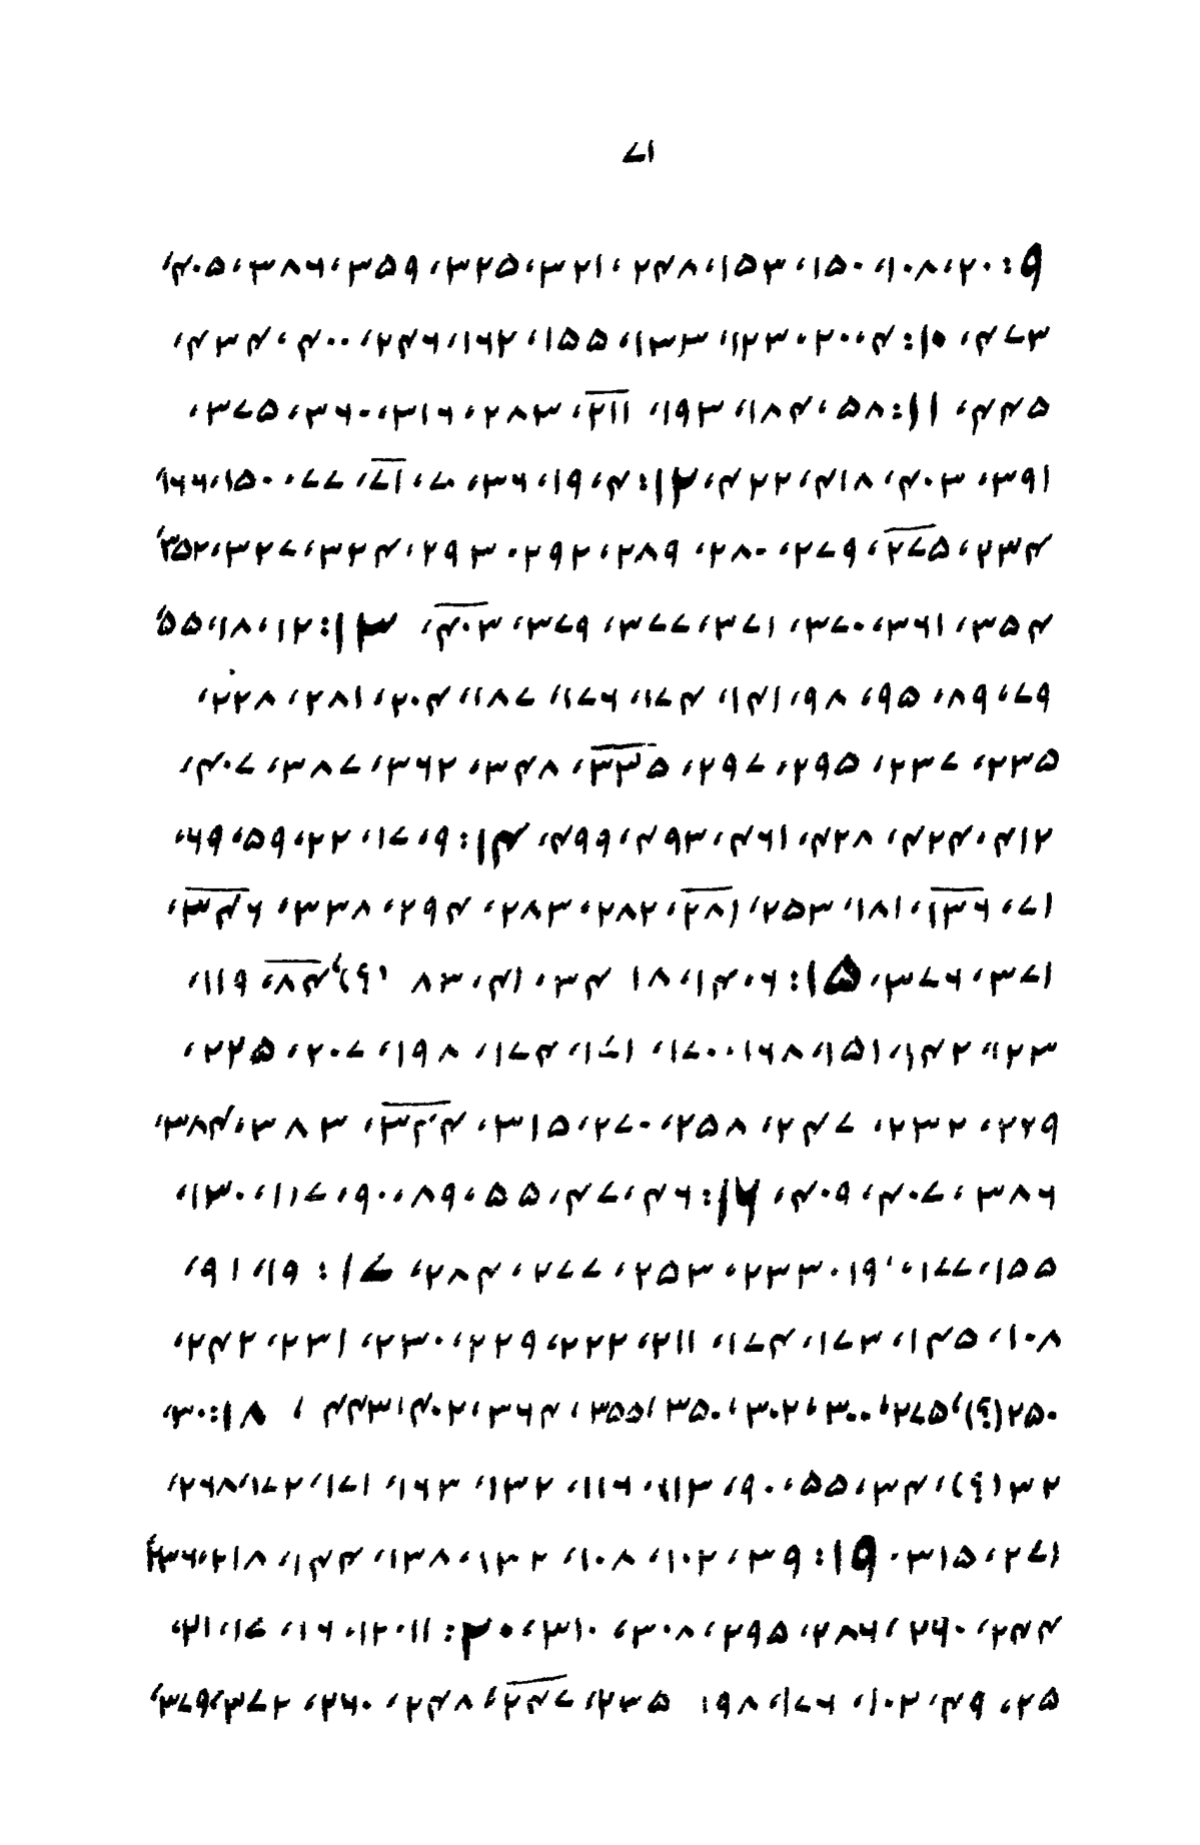 ۷۱
۹: ۲۰، ۱۰۸، ۱۵۰، ۱۵۳، ۲۴۸، ۳۲۱، ۳۲۵، ۳۵۹، ۳۸۶، ۴۰۵،
۴۷۳، ۱۰: ۴، ۲۰، ۱۲۳، ۱۳۳، ۱۵۵، ۱۶۲، ۲۴۶، ۴۰۰، ۴۳۴،
۴۴۵، ۱۱: ۵۸، ۱۸۴، ۱۹۳، ۲۱۱، ۲۸۳، ۳۱۶، ۳۶۰، ۳۷۵،
۳۹۱، ۴۰۳، ۴۱۸، ۴۲۲، ۱۲: ۴، ۱۹، ۳۶، ۷، ۷۱، ۷۷، ۱۵۰، ۱۶۶،
۲۳۴، ۲۷۵، ۲۷۹، ۲۸۰، ۲۸۹، ۲۹۲، ۲۹۳، ۳۲۴، ۳۲۷، ۳۵۲،
۳۵۴، ۳۶۱، ۳۷۰، ۳۷۱، ۳۷۷، ۳۷۹، ۴۰۳، ۱۳: ۱۲، ۱۸، ۵۵،
۷۹، ۸۹، ۹۵، ۹۸، ۱۴۱، ۱۷۴، ۱۷۶، ۱۷۸، ۲۰۴، ۲۸۱، ۲۲۸،
۲۳۵، ۲۳۷، ۲۹۵، ۲۹۷، ۳۳۵، ۳۴۸، ۳۶۲، ۳۸۷، ۴۰۷،
۴۱۲، ۴۲۴، ۴۲۸، ۴۶۱، ۴۹۳، ۴۹۹، ۱۴: ۹، ۱۷، ۲۲، ۵۹، ۶۹،
۷۱، ۱۳۶، ۱۸۱، ۲۵۳، (۲۸، ۲۸۲، ۲۸۳، ۲۹۴، ۳۳۸، ۳۴۶،
۳۷۱، ۳۷۶، ۱۵: ۶، ۱۴، ۱۸ ۳۴، ۴۱، ۳۸ (؟)، ۸۴، ۱۱۹،
۱۲۳، ۱۴۲، ۱۵۱، ۱۶۸، ۱۷۰، ۱۷۱، ۱۷۴، ۱۹۸، ۲۰۷، ۲۲۵،
۲۲۹، ۲۳۲، ۲۴۷، ۲۵۸، ۲۷۰، ۳۱۵، ۳۴۴، ۳۸۳، ۳۸۴،
۳۸۶، ۴۰۷، ۴۰۹، ۱۶: ۴۶، ۴۷، ۵۵، ۸۹، ۹۰، ۱۱۷، ۱۳۰،
۱۵۵، ۱۷۷، ۱۹۰، ۲۳۳، ۲۵۳، ۲۷۷، ۲۸۴، ۱۷: ۱۹، ۹۱،
۱۰۸، ۱۴۵، ۱۷۳، ۱۷۴، ۲۱۱، ۲۲۲، ۲۲۹، ۲۳۰، ۲۳۱، ۲۴۲،
۲۵۰(؟)، ۲۷۵، ۳۰۰، ۳۰۲، ۳۵۰، ۳۵۵، ۳۶۴، ۴۰۲، ۴۴۳، ۱۸: ۳۰،
۳۲(؟)، ۳۴، ۵۵، ۹۰، ۱۱۳، ۱۱۶، ۱۳۲، ۱۶۳، ۱۷۱، ۱۷۲، ۲۶۸،
۲۷۱، ۳۱۵، ۱۹: ۳۹، ۱۰۲، ۱۰۸، ۱۳۲، ۱۳۸، ۱۴۴، ۲۱۸، ۲۳۶،
۲۴۴، ۲۶۰، ۲۸۶، ۲۹۵، ۳۰۸، ۳۱۰، ۲۰: ۱۱، ۱۲، ۱۶، ۱۹، ۲۱،
۲۵، ۴۹، ۱۰۲، ۱۷۶، ۱۹۸ ۲۳۵، ۲۴۷، ۲۴۸، ۲۶۰، ۳۷۲، ۳۷۹،